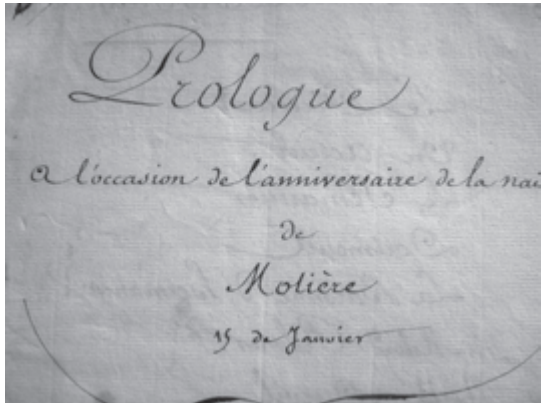 Prologue
A l'occasion de l'anniversaire de la nai
de
Molière
15 de Janvier